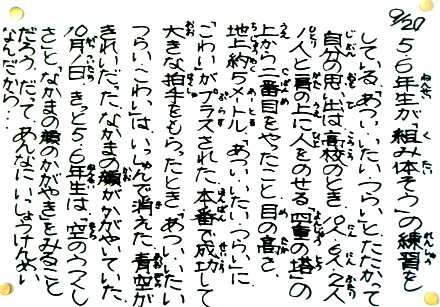 9/20 5・6年生が「組み体そう」の練習を
している。「あつい、いたい、つらい」とたたかって
自分の思い出は、高校のとき、10人・6人・2人・
1人と肩の上に人をのせる「四重の塔」の
上から二番目をやったこと。目の高さ、
地上約5メートル。「あつい、いたい、つらい」に
「こわい」がプラスされた。本番で成功して
大きな拍手をもらったとき、「あつい、いたい
つらい、こわい」は、いっしゅんで消えた。青空が
きれいだった。なかまの顔がかがやいていた。
10月1日、きっと5・6年生は、「空のうつくし
さ」と「なかまの顔のかがやき」をみること
だろう。だって、あんなにいっしょうけんめい
なんだから…